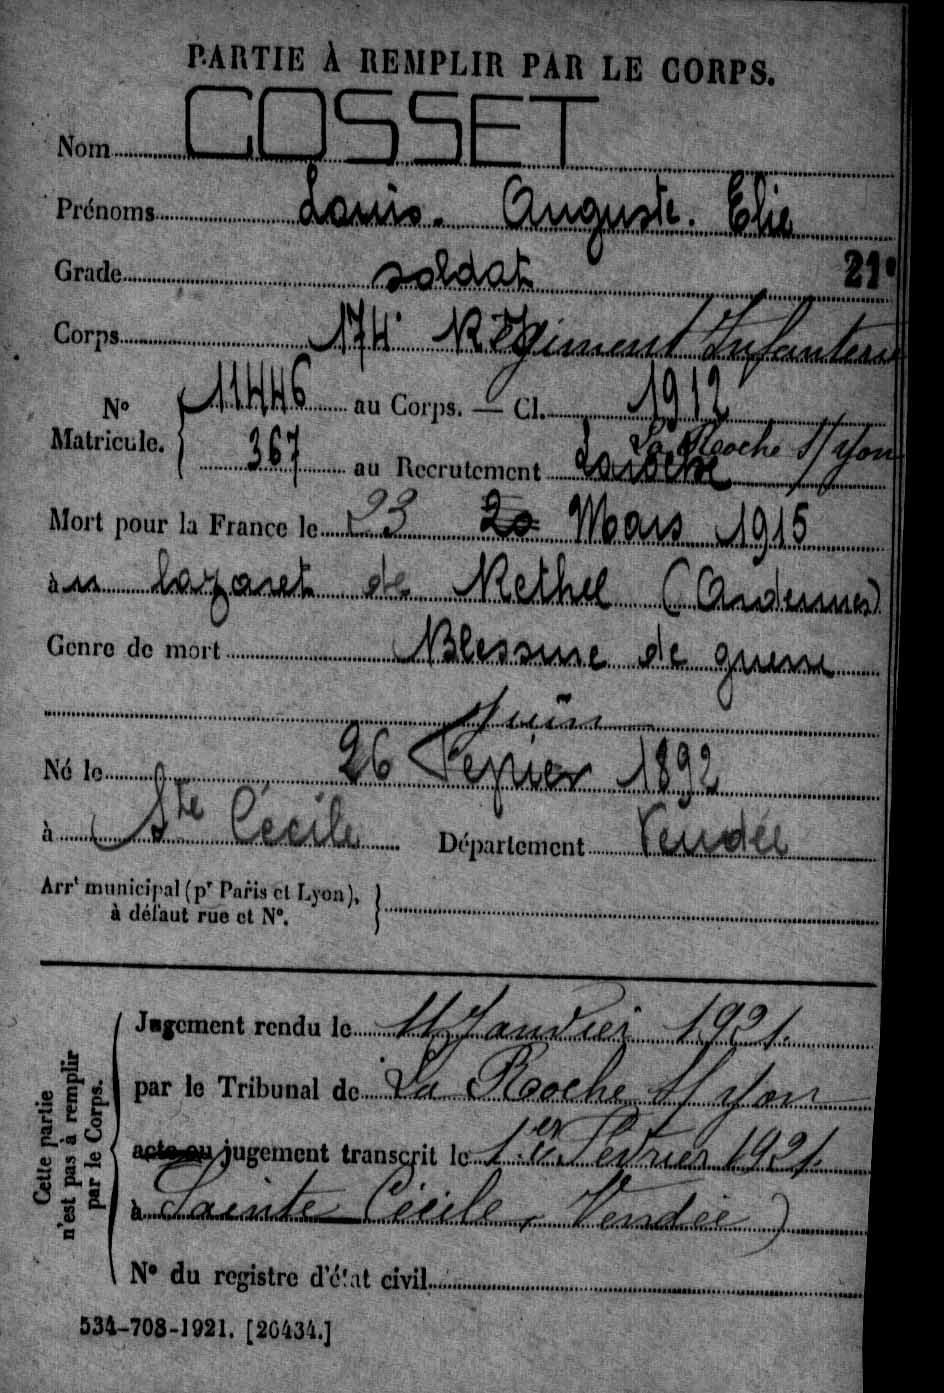 PARTIE À REMPLIR PAR LE CORPS.
Nom GOSSET
Prénoms Louis. Auguste. Elie
Grade soldat 21e
Corps 174e Régiment Infanterie
No Matricule. { 11446 au Corps. — Cl. 1912
La Roche S/Yon
367 au Recrutement Laroche
Mort pour la France le 23 20 Mars 1915
à u lazaret de Rethel (Ardennes)
Genre de mort Blessure de guerre
Juin
Né le 26 Fevrier 1892
à Ste Cécile Département Vendée
Arrt municipal (pr Paris et Lyon), à défaut rue et No. }
Cette partie n'est pas à remplir par le Corps.
Jugement rendu le 11 Janvier 1921.
par le Tribunal de La Roche S/Yon
acte ou jugement transcrit le 1er Fevrier 1921.
à Sainte Cécile, Vendée)
No du registre d'état civil
534-708-1921. [26434.]